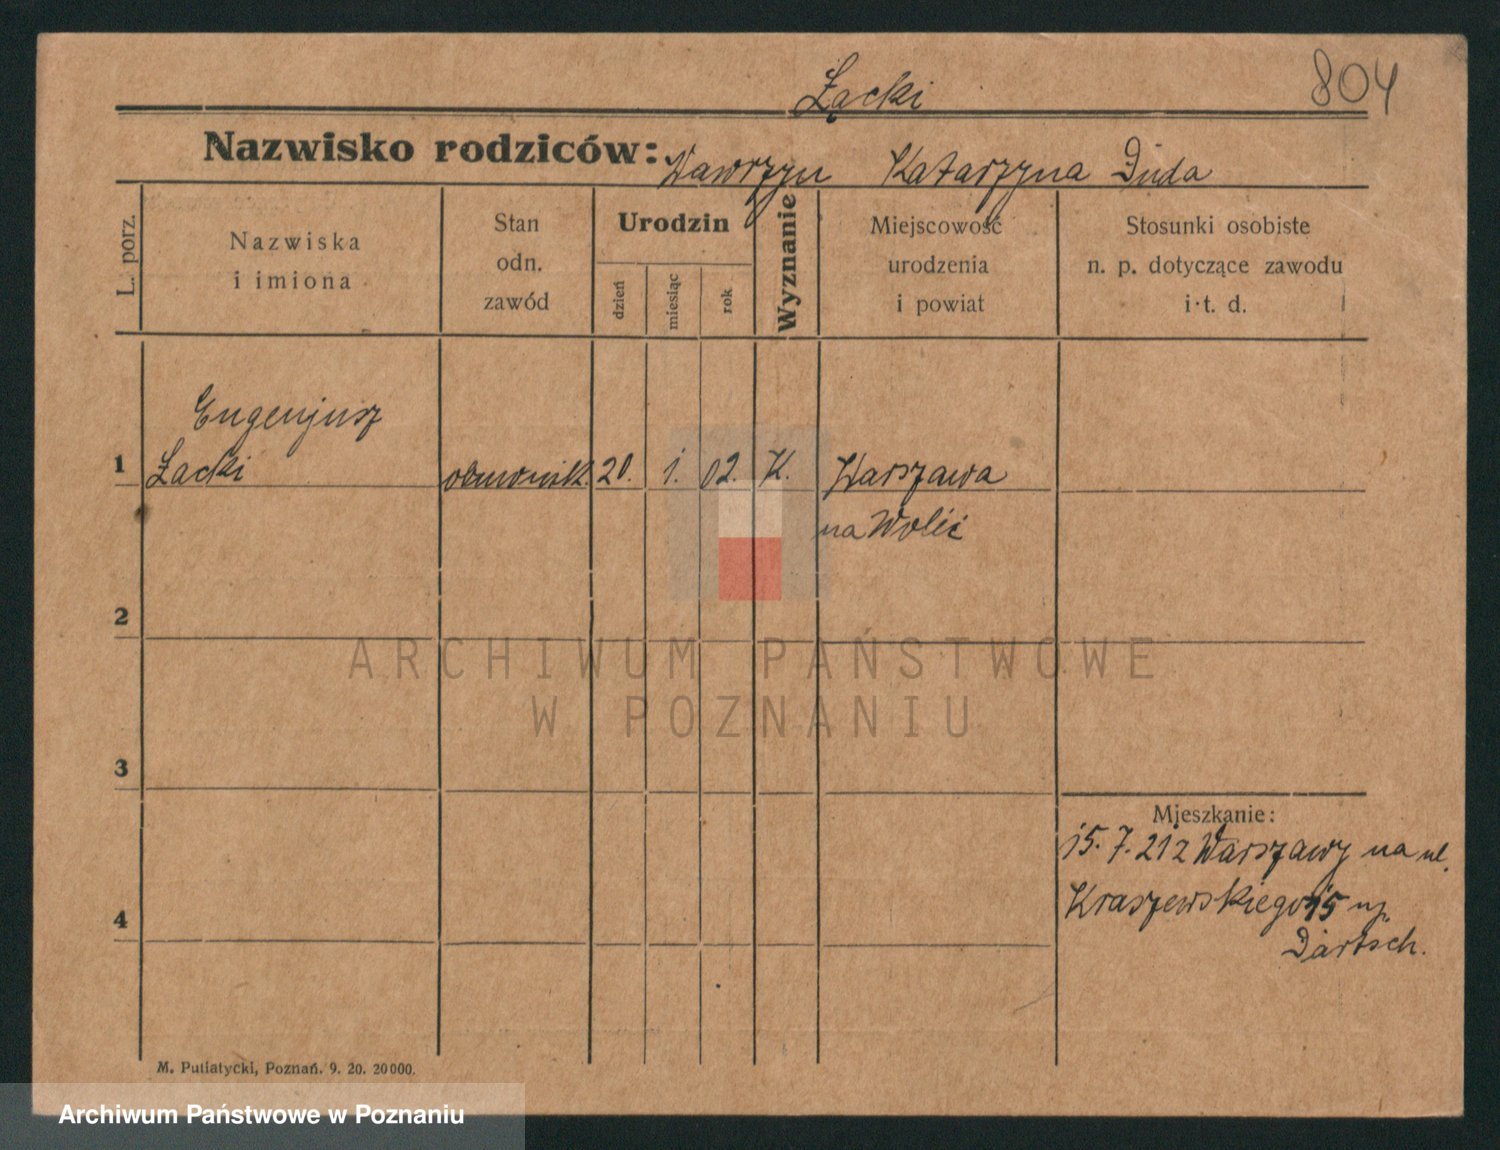 804
Łącki
Nazwisko rodziców: Wawrzyn Katarzyna Duda
L. porz.
Nazwiska
i imiona
Stan
odn.
zawód
Urodzin
dzień
miesiąc
rok
Wyznanie
Miejscowość
urodzenia
i powiat
Stosunki osobiste
n. p. dotyczące zawodu
i t. d.
Eugenjusz
1 Łacki 20. 1. 02. K. Warszawa
na Wolić
2
ARCHIWUM PAŃSTWOWE
W POZNANIU
3
Mieszkanie:
15. 7. 21 z Warszawy na ul.
Kraszewskiego 15 up.
4
M. Putiatycki, Poznań. 9. 20. 20000.
Archiwum Państwowe w Poznaniu